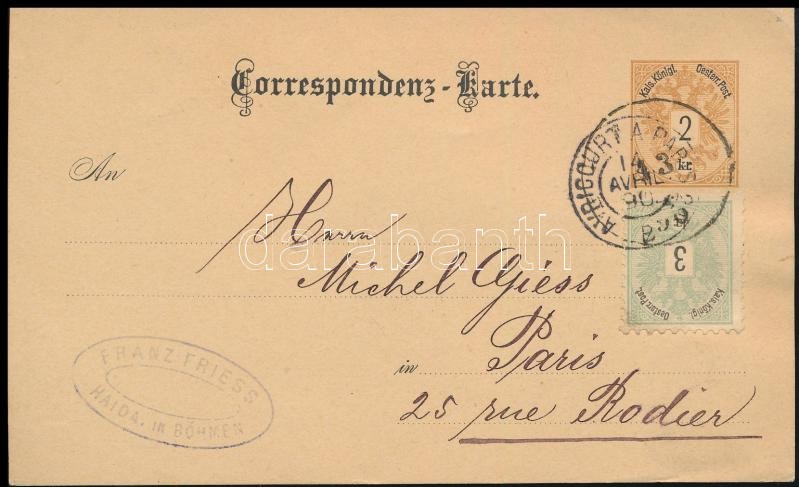 Correspondenz-Karte.
Kais. Königl. Oesterr. Post
2
kr.
AVRICOURT A PARIS
14
AVRIL
90
An
Herrn
Michel Giess
in Paris
25 rue Rodier
3
Kais. Königl. Oesterr. Post.
FRANZ FRIESS
HAIDA, IN BÖHMEN
darabanth